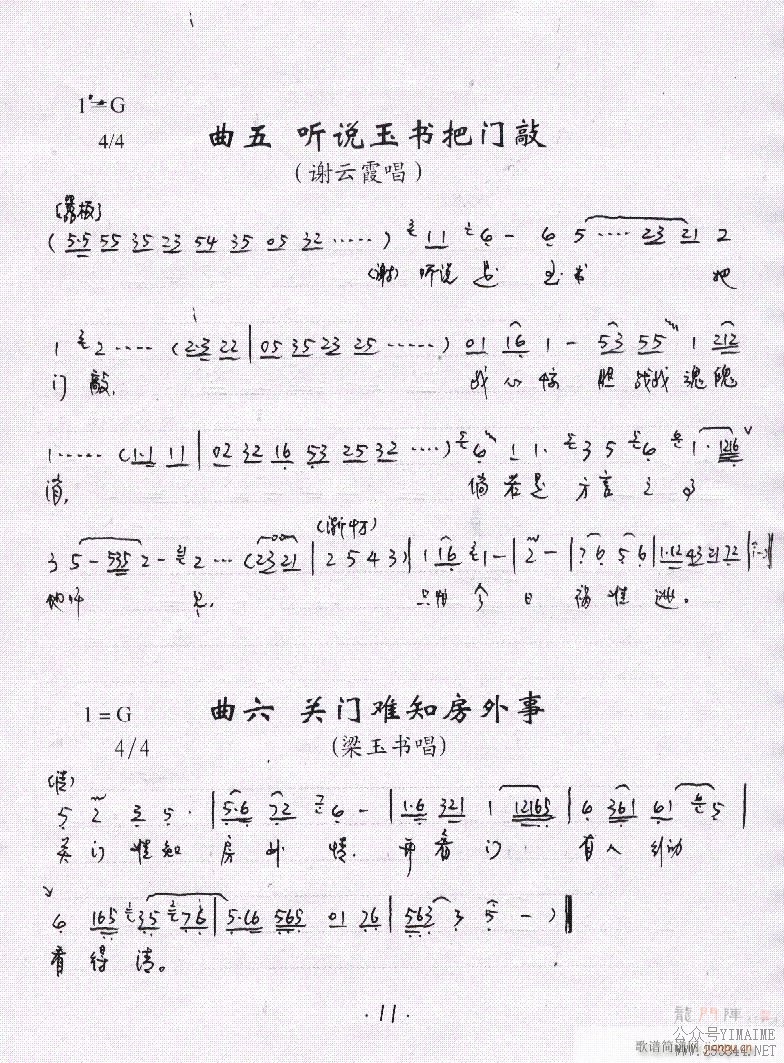 1=G
4/4
曲五 听说玉书把门敲
(谢云霞唱)
(5·5 55 35 23 54 35 05 32 ·····) 11 6 - 6 5 ···· 23 21 2
(谢) 听说是 玉书 把
1 2 ···· (2·3 22 | 05 35 23 25 ·····) 01 16 1 - 53 55 1 212
门敲, 我心惊 胆战战魂魄
1 ····· (1·1 11 | 02 32 16 53 25 32 ····) 6 1 1· 3 5 6 1· 1216
消, 倘若是 方言之
3 5 - 535 2 - 2 ··· (2321 | 2 5 4 3) | 1 16 1 - | 2 - | 76 56 | 1·12 43 21 72 |
见, 只怕今日祸难逃。
1=G
4/4
曲六 关门难知房外事
(梁玉书唱)
5 2 3 5· | 5·6 72 6 - | 1·6 321 1 12165 | 6 361 61 5 |
关门难知房外情. 开看门 有人
6 165 35 76 | 5·66 565 01 76 | 563 3 5 - )
看得清。
·11·
龍門陣
公众号YIMAIME
歌谱简谱网